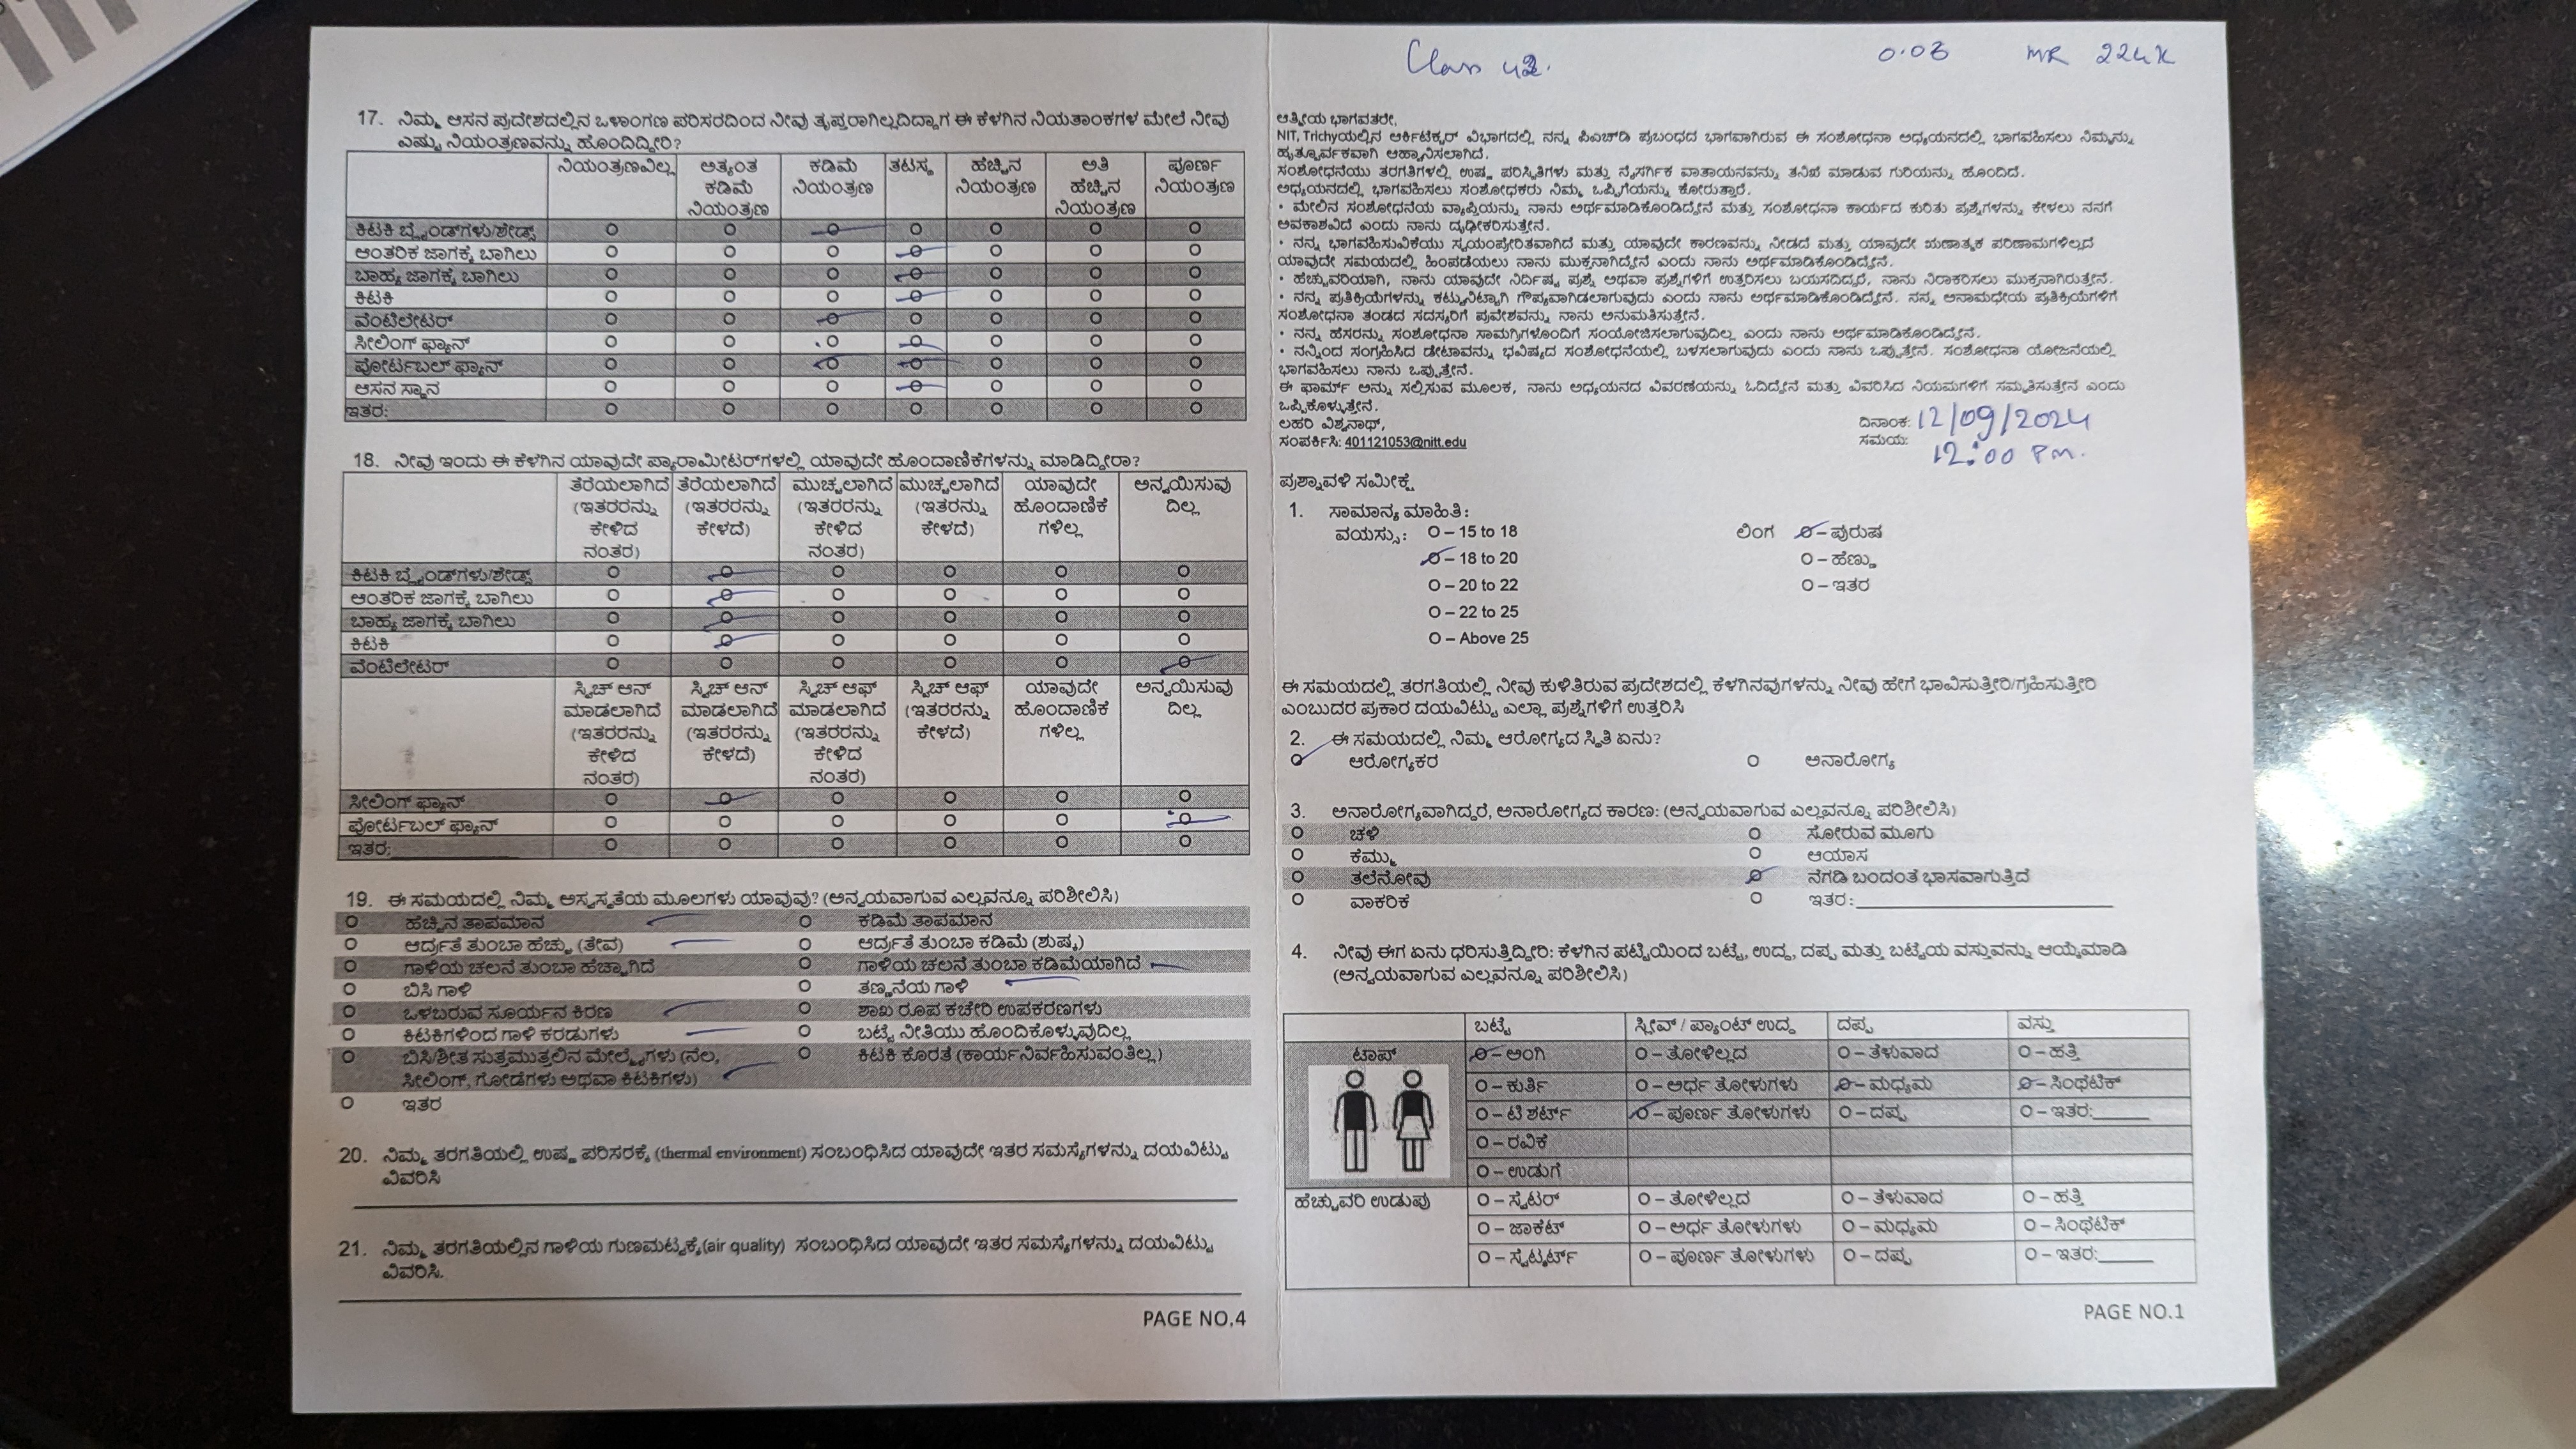 17. ನಿಮ್ಮ ಆಸನ ಪ್ರದೇಶದಲ್ಲಿನ ಒಳಾಂಗಣ ಪರಿಸರದಿಂದ ನೀವು ತೃಪ್ತರಾಗಿಲ್ಲದಿದ್ದಾಗ ಈ ಕೆಳಗಿನ ನಿಯತಾಂಕಗಳ ಮೇಲೆ ನೀವು
ಎಷ್ಟು ನಿಯಂತ್ರಣವನ್ನು ಹೊಂದಿದ್ದೀರಿ?
ನಿಯಂತ್ರಣವಿಲ್ಲ ಅತ್ಯಂತ ಕಡಿಮೆ ನಿಯಂತ್ರಣ ಕಡಿಮೆ ನಿಯಂತ್ರಣ ತಟಸ್ಥ ಹೆಚ್ಚಿನ ನಿಯಂತ್ರಣ ಅತಿ ಹೆಚ್ಚಿನ ನಿಯಂತ್ರಣ ಪೂರ್ಣ ನಿಯಂತ್ರಣ
ಕಿಟಕಿ ಬ್ಲೈಂಡ್‌ಗಳು/ಶೇಡ್ಸ್
ಆಂತರಿಕ ಜಾಗಕ್ಕೆ ಬಾಗಿಲು
ಬಾಹ್ಯ ಜಾಗಕ್ಕೆ ಬಾಗಿಲು
ಕಿಟಕಿ
ವೆಂಟಿಲೇಟರ್
ಸೀಲಿಂಗ್ ಫ್ಯಾನ್
ಪೋರ್ಟಬಲ್ ಫ್ಯಾನ್
ಆಸನ ಸ್ಥಾನ
ಇತರ:
18. ನೀವು ಇಂದು ಈ ಕೆಳಗಿನ ಯಾವುದೇ ಪ್ಯಾರಾಮೀಟರ್‌ಗಳಲ್ಲಿ ಯಾವುದೇ ಹೊಂದಾಣಿಕೆಗಳನ್ನು ಮಾಡಿದ್ದೀರಾ?
ತೆರೆಯಲಾಗಿದೆ (ಇತರರನ್ನು ಕೇಳಿದ ನಂತರ) ತೆರೆಯಲಾಗಿದೆ (ಇತರರನ್ನು ಕೇಳದೆ) ಮುಚ್ಚಲಾಗಿದೆ (ಇತರರನ್ನು ಕೇಳಿದ ನಂತರ) ಮುಚ್ಚಲಾಗಿದೆ (ಇತರರನ್ನು ಕೇಳದೆ) ಯಾವುದೇ ಹೊಂದಾಣಿಕೆ ಗಳಿಲ್ಲ ಅನ್ವಯಿಸುವು ದಿಲ್ಲ
ಕಿಟಕಿ ಬ್ಲೈಂಡ್‌ಗಳು/ಶೇಡ್ಸ್
ಆಂತರಿಕ ಜಾಗಕ್ಕೆ ಬಾಗಿಲು
ಬಾಹ್ಯ ಜಾಗಕ್ಕೆ ಬಾಗಿಲು
ಕಿಟಕಿ
ವೆಂಟಿಲೇಟರ್
ಸ್ವಿಚ್ ಆನ್ ಮಾಡಲಾಗಿದೆ (ಇತರರನ್ನು ಕೇಳಿದ ನಂತರ) ಸ್ವಿಚ್ ಆನ್ ಮಾಡಲಾಗಿದೆ (ಇತರರನ್ನು ಕೇಳದೆ) ಸ್ವಿಚ್ ಆಫ್ ಮಾಡಲಾಗಿದೆ (ಇತರರನ್ನು ಕೇಳಿದ ನಂತರ) ಸ್ವಿಚ್ ಆಫ್ (ಇತರರನ್ನು ಕೇಳದೆ) ಯಾವುದೇ ಹೊಂದಾಣಿಕೆ ಗಳಿಲ್ಲ ಅನ್ವಯಿಸುವು ದಿಲ್ಲ
ಸೀಲಿಂಗ್ ಫ್ಯಾನ್
ಪೋರ್ಟಬಲ್ ಫ್ಯಾನ್
ಇತರ:
19. ಈ ಸಮಯದಲ್ಲಿ ನಿಮ್ಮ ಅಸ್ವಸ್ಥತೆಯ ಮೂಲಗಳು ಯಾವುವು? (ಅನ್ವಯವಾಗುವ ಎಲ್ಲವನ್ನೂ ಪರಿಶೀಲಿಸಿ)
ಹೆಚ್ಚಿನ ತಾಪಮಾನ ಕಡಿಮೆ ತಾಪಮಾನ
ಆರ್ದ್ರತೆ ತುಂಬಾ ಹೆಚ್ಚು (ತೇವ) ಆರ್ದ್ರತೆ ತುಂಬಾ ಕಡಿಮೆ (ಶುಷ್ಕ)
ಗಾಳಿಯ ಚಲನೆ ತುಂಬಾ ಹೆಚ್ಚಾಗಿದೆ ಗಾಳಿಯ ಚಲನೆ ತುಂಬಾ ಕಡಿಮೆಯಾಗಿದೆ
ಬಿಸಿ ಗಾಳಿ ತಣ್ಣನೆಯ ಗಾಳಿ
ಒಳಬರುವ ಸೂರ್ಯನ ಕಿರಣ ಶಾಖ ರೂಪ ಕಚೇರಿ ಉಪಕರಣಗಳು
ಕಿಟಕಿಗಳಿಂದ ಗಾಳಿ ಕರಡುಗಳು ಬಟ್ಟೆ ನೀತಿಯು ಹೊಂದಿಕೊಳ್ಳುವುದಿಲ್ಲ
ಬಿಸಿ/ಶೀತ ಸುತ್ತಮುತ್ತಲಿನ ಮೇಲ್ಮೈಗಳು (ನೆಲ, ಕಿಟಕಿ ಕೊರತೆ (ಕಾರ್ಯನಿರ್ವಹಿಸುವಂತಿಲ್ಲ)
ಸೀಲಿಂಗ್, ಗೋಡೆಗಳು ಅಥವಾ ಕಿಟಕಿಗಳು)
ಇತರ
20. ನಿಮ್ಮ ತರಗತಿಯಲ್ಲಿ ಉಷ್ಣ ಪರಿಸರಕ್ಕೆ (thermal environment) ಸಂಬಂಧಿಸಿದ ಯಾವುದೇ ಇತರ ಸಮಸ್ಯೆಗಳನ್ನು ದಯವಿಟ್ಟು
ವಿವರಿಸಿ
21. ನಿಮ್ಮ ತರಗತಿಯಲ್ಲಿನ ಗಾಳಿಯ ಗುಣಮಟ್ಟಕ್ಕೆ(air quality) ಸಂಬಂಧಿಸಿದ ಯಾವುದೇ ಇತರ ಸಮಸ್ಯೆಗಳನ್ನು ದಯವಿಟ್ಟು
ವಿವರಿಸಿ.
PAGE NO.4
Class 0.03 MR
ಆತ್ಮೀಯ ಭಾಗವತರೇ,
NIT, Trichyಯಲ್ಲಿನ ಆರ್ಕಿಟೆಕ್ಚರ್ ವಿಭಾಗದಲ್ಲಿ ನನ್ನ ಪಿಎಚ್‌ಡಿ ಪ್ರಬಂಧದ ಭಾಗವಾಗಿರುವ ಈ ಸಂಶೋಧನಾ ಅಧ್ಯಯನದಲ್ಲಿ ಭಾಗವಹಿಸಲು ನಿಮ್ಮನ್ನು
ಹೃತ್ಪೂರ್ವಕವಾಗಿ ಆಹ್ವಾನಿಸಲಾಗಿದೆ.
ಸಂಶೋಧನೆಯು ತರಗತಿಗಳಲ್ಲಿ ಉಷ್ಣ ಪರಿಸ್ಥಿತಿಗಳು ಮತ್ತು ನೈಸರ್ಗಿಕ ವಾತಾಯನವನ್ನು ತನಿಖೆ ಮಾಡುವ ಗುರಿಯನ್ನು ಹೊಂದಿದೆ.
ಅಧ್ಯಯನದಲ್ಲಿ ಭಾಗವಹಿಸಲು ಸಂಶೋಧಕರು ನಿಮ್ಮ ಒಪ್ಪಿಗೆಯನ್ನು ಕೋರುತ್ತಾರೆ.
• ಮೇಲಿನ ಸಂಶೋಧನೆಯ ವ್ಯಾಪ್ತಿಯನ್ನು ನಾನು ಅರ್ಥಮಾಡಿಕೊಂಡಿದ್ದೇನೆ ಮತ್ತು ಸಂಶೋಧನಾ ಕಾರ್ಯದ ಕುರಿತು ಪ್ರಶ್ನೆಗಳನ್ನು ಕೇಳಲು ನನಗೆ
ಅವಕಾಶವಿದೆ ಎಂದು ನಾನು ದೃಢೀಕರಿಸುತ್ತೇನೆ.
• ನನ್ನ ಭಾಗವಹಿಸುವಿಕೆಯು ಸ್ವಯಂಪ್ರೇರಿತವಾಗಿದೆ ಮತ್ತು ಯಾವುದೇ ಕಾರಣವನ್ನು ನೀಡದೆ ಮತ್ತು ಯಾವುದೇ ಋಣಾತ್ಮಕ ಪರಿಣಾಮಗಳಿಲ್ಲದೆ
ಯಾವುದೇ ಸಮಯದಲ್ಲಿ ಹಿಂಪಡೆಯಲು ನಾನು ಮುಕ್ತನಾಗಿದ್ದೇನೆ ಎಂದು ನಾನು ಅರ್ಥಮಾಡಿಕೊಂಡಿದ್ದೇನೆ.
• ಹೆಚ್ಚುವರಿಯಾಗಿ, ನಾನು ಯಾವುದೇ ನಿರ್ದಿಷ್ಟ ಪ್ರಶ್ನೆ ಅಥವಾ ಪ್ರಶ್ನೆಗಳಿಗೆ ಉತ್ತರಿಸಲು ಬಯಸದಿದ್ದರೆ, ನಾನು ನಿರಾಕರಿಸಲು ಮುಕ್ತನಾಗಿರುತ್ತೇನೆ.
• ನನ್ನ ಪ್ರತಿಕ್ರಿಯೆಗಳನ್ನು ಕಟ್ಟುನಿಟ್ಟಾಗಿ ಗೌಪ್ಯವಾಗಿಡಲಾಗುವುದು ಎಂದು ನಾನು ಅರ್ಥಮಾಡಿಕೊಂಡಿದ್ದೇನೆ. ನನ್ನ ಅನಾಮಧೇಯ ಪ್ರತಿಕ್ರಿಯೆಗಳಿಗೆ
ಸಂಶೋಧನಾ ತಂಡದ ಸದಸ್ಯರಿಗೆ ಪ್ರವೇಶವನ್ನು ನಾನು ಅನುಮತಿಸುತ್ತೇನೆ.
• ನನ್ನ ಹೆಸರನ್ನು ಸಂಶೋಧನಾ ಸಾಮಗ್ರಿಗಳೊಂದಿಗೆ ಸಂಯೋಜಿಸಲಾಗುವುದಿಲ್ಲ ಎಂದು ನಾನು ಅರ್ಥಮಾಡಿಕೊಂಡಿದ್ದೇನೆ.
• ನನ್ನಿಂದ ಸಂಗ್ರಹಿಸಿದ ಡೇಟಾವನ್ನು ಭವಿಷ್ಯದ ಸಂಶೋಧನೆಯಲ್ಲಿ ಬಳಸಲಾಗುವುದು ಎಂದು ನಾನು ಒಪ್ಪುತ್ತೇನೆ. ಸಂಶೋಧನಾ ಯೋಜನೆಯಲ್ಲಿ
ಭಾಗವಹಿಸಲು ನಾನು ಒಪ್ಪುತ್ತೇನೆ.
ಈ ಫಾರ್ಮ್ ಅನ್ನು ಸಲ್ಲಿಸುವ ಮೂಲಕ, ನಾನು ಅಧ್ಯಯನದ ವಿವರಣೆಯನ್ನು ಓದಿದ್ದೇನೆ ಮತ್ತು ವಿವರಿಸಿದ ನಿಯಮಗಳಿಗೆ ಸಮ್ಮತಿಸುತ್ತೇನೆ ಎಂದು
ಒಪ್ಪಿಕೊಳ್ಳುತ್ತೇನೆ.
ಲಹರಿ ವಿಶ್ವನಾಥ್,
ಸಂಪರ್ಕಿಸಿ: 401121053@nitt.edu
ದಿನಾಂಕ: 12/09/2024
ಸಮಯ: 12:00 Pm.
ಪ್ರಶ್ನಾವಳಿ ಸಮೀಕ್ಷೆ
1. ಸಾಮಾನ್ಯ ಮಾಹಿತಿ:
ವಯಸ್ಸು: O – 15 to 18 ಲಿಂಗ O – ಪುರುಷ
O – 18 to 20 O – ಹೆಣ್ಣು
O – 20 to 22 O – ಇತರ
O – 22 to 25
O – Above 25
ಈ ಸಮಯದಲ್ಲಿ ತರಗತಿಯಲ್ಲಿ ನೀವು ಕುಳಿತಿರುವ ಪ್ರದೇಶದಲ್ಲಿ ಕೆಳಗಿನವುಗಳನ್ನು ನೀವು ಹೇಗೆ ಭಾವಿಸುತ್ತೀರಿ/ಗ್ರಹಿಸುತ್ತೀರಿ
ಎಂಬುದರ ಪ್ರಕಾರ ದಯವಿಟ್ಟು ಎಲ್ಲಾ ಪ್ರಶ್ನೆಗಳಿಗೆ ಉತ್ತರಿಸಿ
2. ಈ ಸಮಯದಲ್ಲಿ ನಿಮ್ಮ ಆರೋಗ್ಯದ ಸ್ಥಿತಿ ಏನು?
ಆರೋಗ್ಯಕರ ಅನಾರೋಗ್ಯ
3. ಅನಾರೋಗ್ಯವಾಗಿದ್ದರೆ, ಅನಾರೋಗ್ಯದ ಕಾರಣ: (ಅನ್ವಯವಾಗುವ ಎಲ್ಲವನ್ನೂ ಪರಿಶೀಲಿಸಿ)
ಚಳಿ ಸೋರುವ ಮೂಗು
ಕೆಮ್ಮು ಆಯಾಸ
ತಲೆನೋವು ನೆಗಡಿ ಬಂದಂತೆ ಭಾಸವಾಗುತ್ತಿದೆ
ವಾಕರಿಕೆ ಇತರ:
4. ನೀವು ಈಗ ಏನು ಧರಿಸುತ್ತಿದ್ದೀರಿ: ಕೆಳಗಿನ ಪಟ್ಟಿಯಿಂದ ಬಟ್ಟೆ, ಉದ್ದ, ದಪ್ಪ ಮತ್ತು ಬಟ್ಟೆಯ ವಸ್ತುವನ್ನು ಆಯ್ಕೆಮಾಡಿ
(ಅನ್ವಯವಾಗುವ ಎಲ್ಲವನ್ನೂ ಪರಿಶೀಲಿಸಿ)
ಬಟ್ಟೆ ಸ್ಲೀವ್ / ಪ್ಯಾಂಟ್ ಉದ್ದ ದಪ್ಪ ವಸ್ತು
ಟಾಪ್ O – ಅಂಗಿ O – ತೋಳಿಲ್ಲದ O – ತೆಳುವಾದ O – ಹತ್ತಿ
O – ಕುರ್ತಿ O – ಅರ್ಧ ತೋಳುಗಳು O – ಮಧ್ಯಮ O – ಸಿಂಥೆಟಿಕ್
O – ಟಿ ಶರ್ಟ್ O – ಪೂರ್ಣ ತೋಳುಗಳು O – ದಪ್ಪ O – ಇತರ:
O – ರವಿಕೆ
O – ಉಡುಗೆ
ಹೆಚ್ಚುವರಿ ಉಡುಪು O – ಸ್ವೆಟರ್ O – ತೋಳಿಲ್ಲದ O – ತೆಳುವಾದ O – ಹತ್ತಿ
O – ಜಾಕೆಟ್ O – ಅರ್ಧ ತೋಳುಗಳು O – ಮಧ್ಯಮ O – ಸಿಂಥೆಟಿಕ್
O – ಸ್ವೆಟ್ಶರ್ಟ್ O – ಪೂರ್ಣ ತೋಳುಗಳು O – ದಪ್ಪ O – ಇತರ:
PAGE NO.1